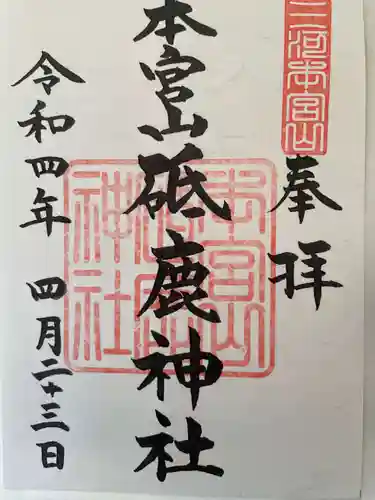 三河本宮山
奉拝
本宮山砥鹿神社
令和四年 四月二十三日